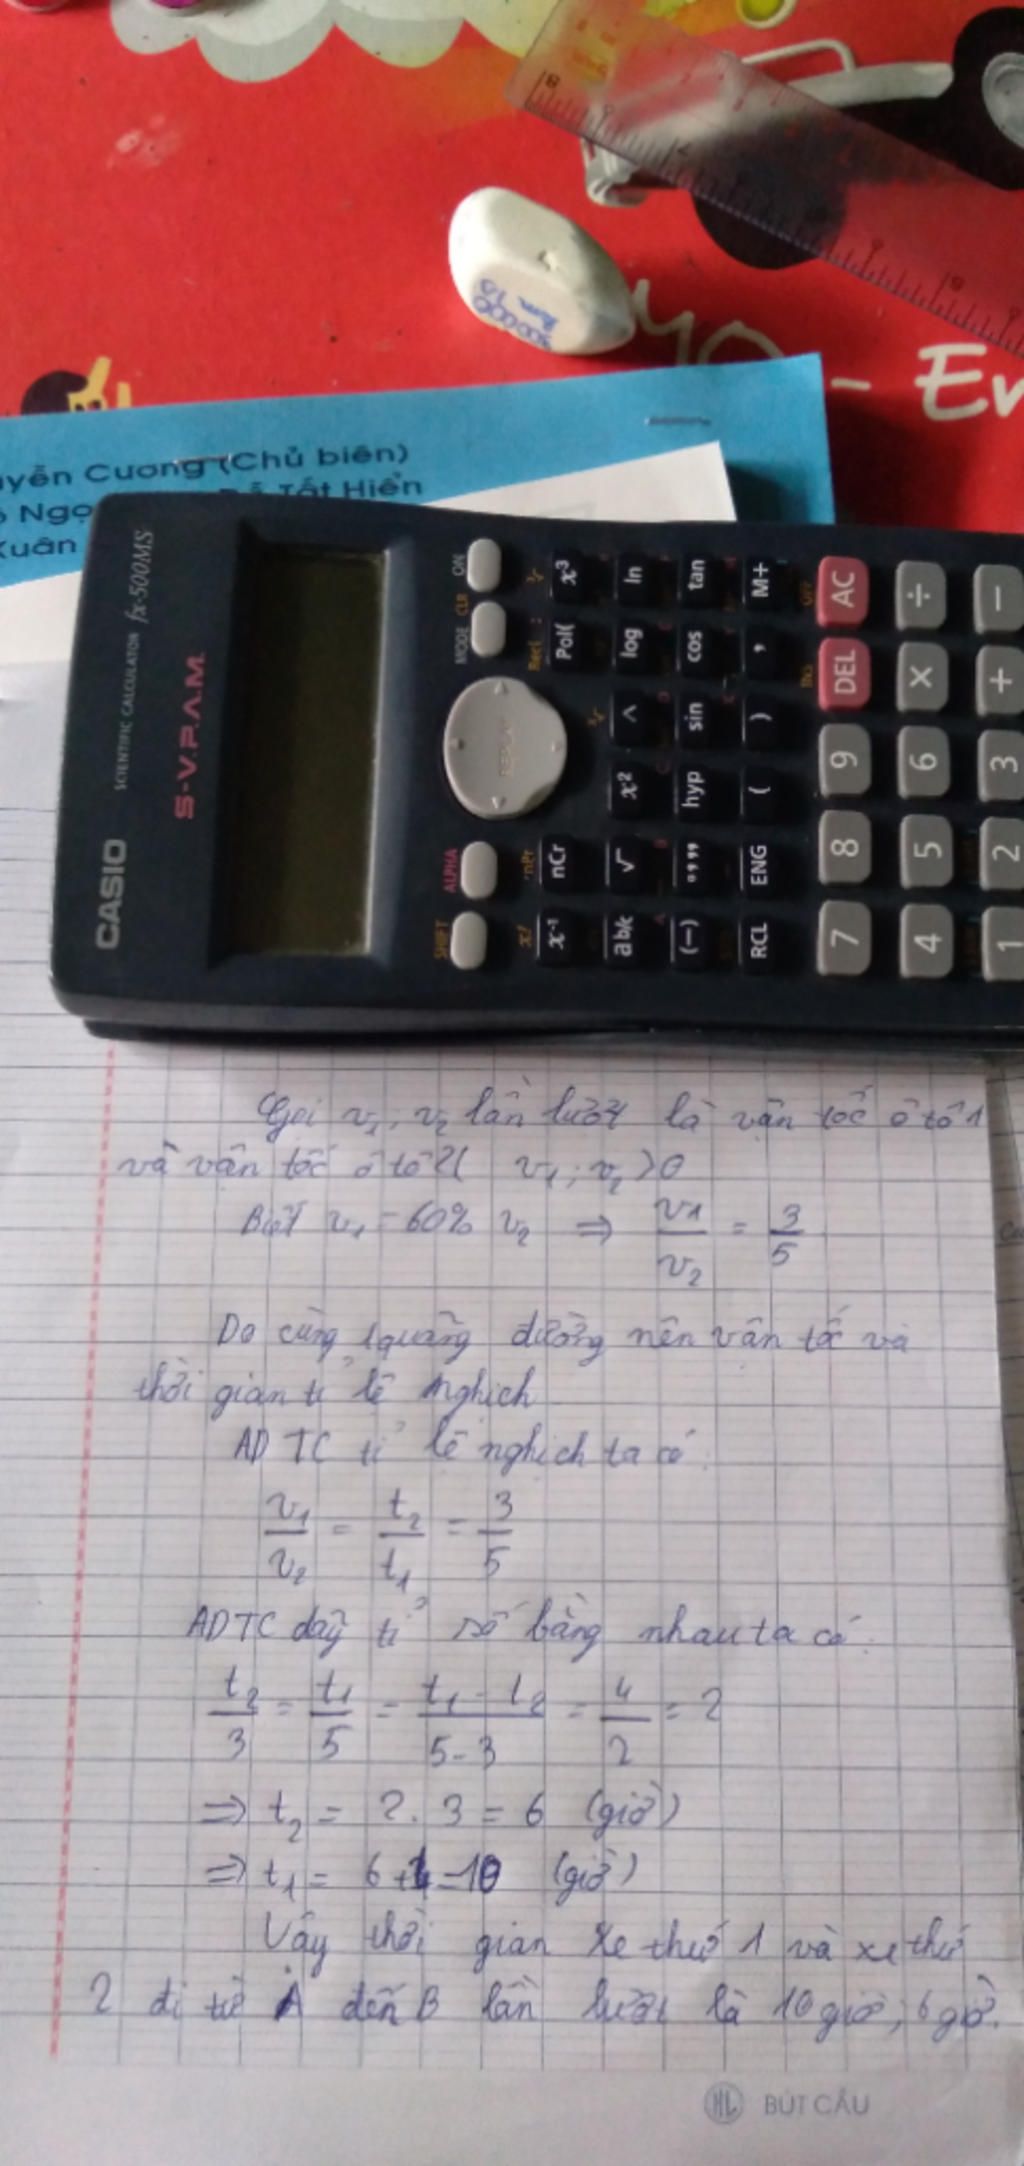 - En
yễn Cương (Chủ biên)
Ngọ
Tất Hiển
Xuân
CASIO
SCIENTIFIC CALCULATOR fx-500MS
S-V.P.A.M.
SHIFT ALPHA MODE CLR ON
REPLAY
x! nPr Rec( :
x⁻¹ nCr Pol( x³
ab/c √ x² ^ log ln
(−) °''' hyp sin cos tan
RCL ENG ( ) , M+
INS OFF
7 8 9 DEL AC
4 5 6 × ÷
1 2 3 + −
Gọi v₁; v₂ lần lượt là vận tốc ô tô 1
và vận tốc ô tô 2( v₁; v₂ >0
Biết v₁ = 60% v₂ ⇒ v1/v₂ = 3/5
Do cùng 1 quãng đường nên vận tốc và
thời gian tỉ lệ nghịch
ADTC tỉ lệ nghịch ta có:
v₁/v₂ = t₂/t₁ = 3/5
ADTC dãy tỉ số bằng nhau ta có:
t₂/3 = t₁/5 = t₁ - t₂/5-3 = 4/2 = 2
⇒ t₂ = 2. 3 = 6 (giờ)
⇒ t₁ = 6+4=10 (giờ)
Vậy thời gian xe thứ 1 và xe thứ
2 đi từ A đến B lần lượt là 10 giờ; 6 giờ.
HL BÚT CẦU